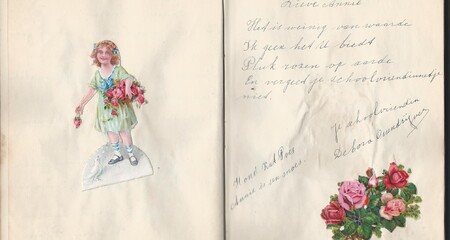 Lieve Annie
Het is weinig van waarde
Ik geen het U biedt
Pluk rozen op aarde
En vergeet je schoolvriendinnetje
niet.
Je schoolvriendin
Debora
Annie is